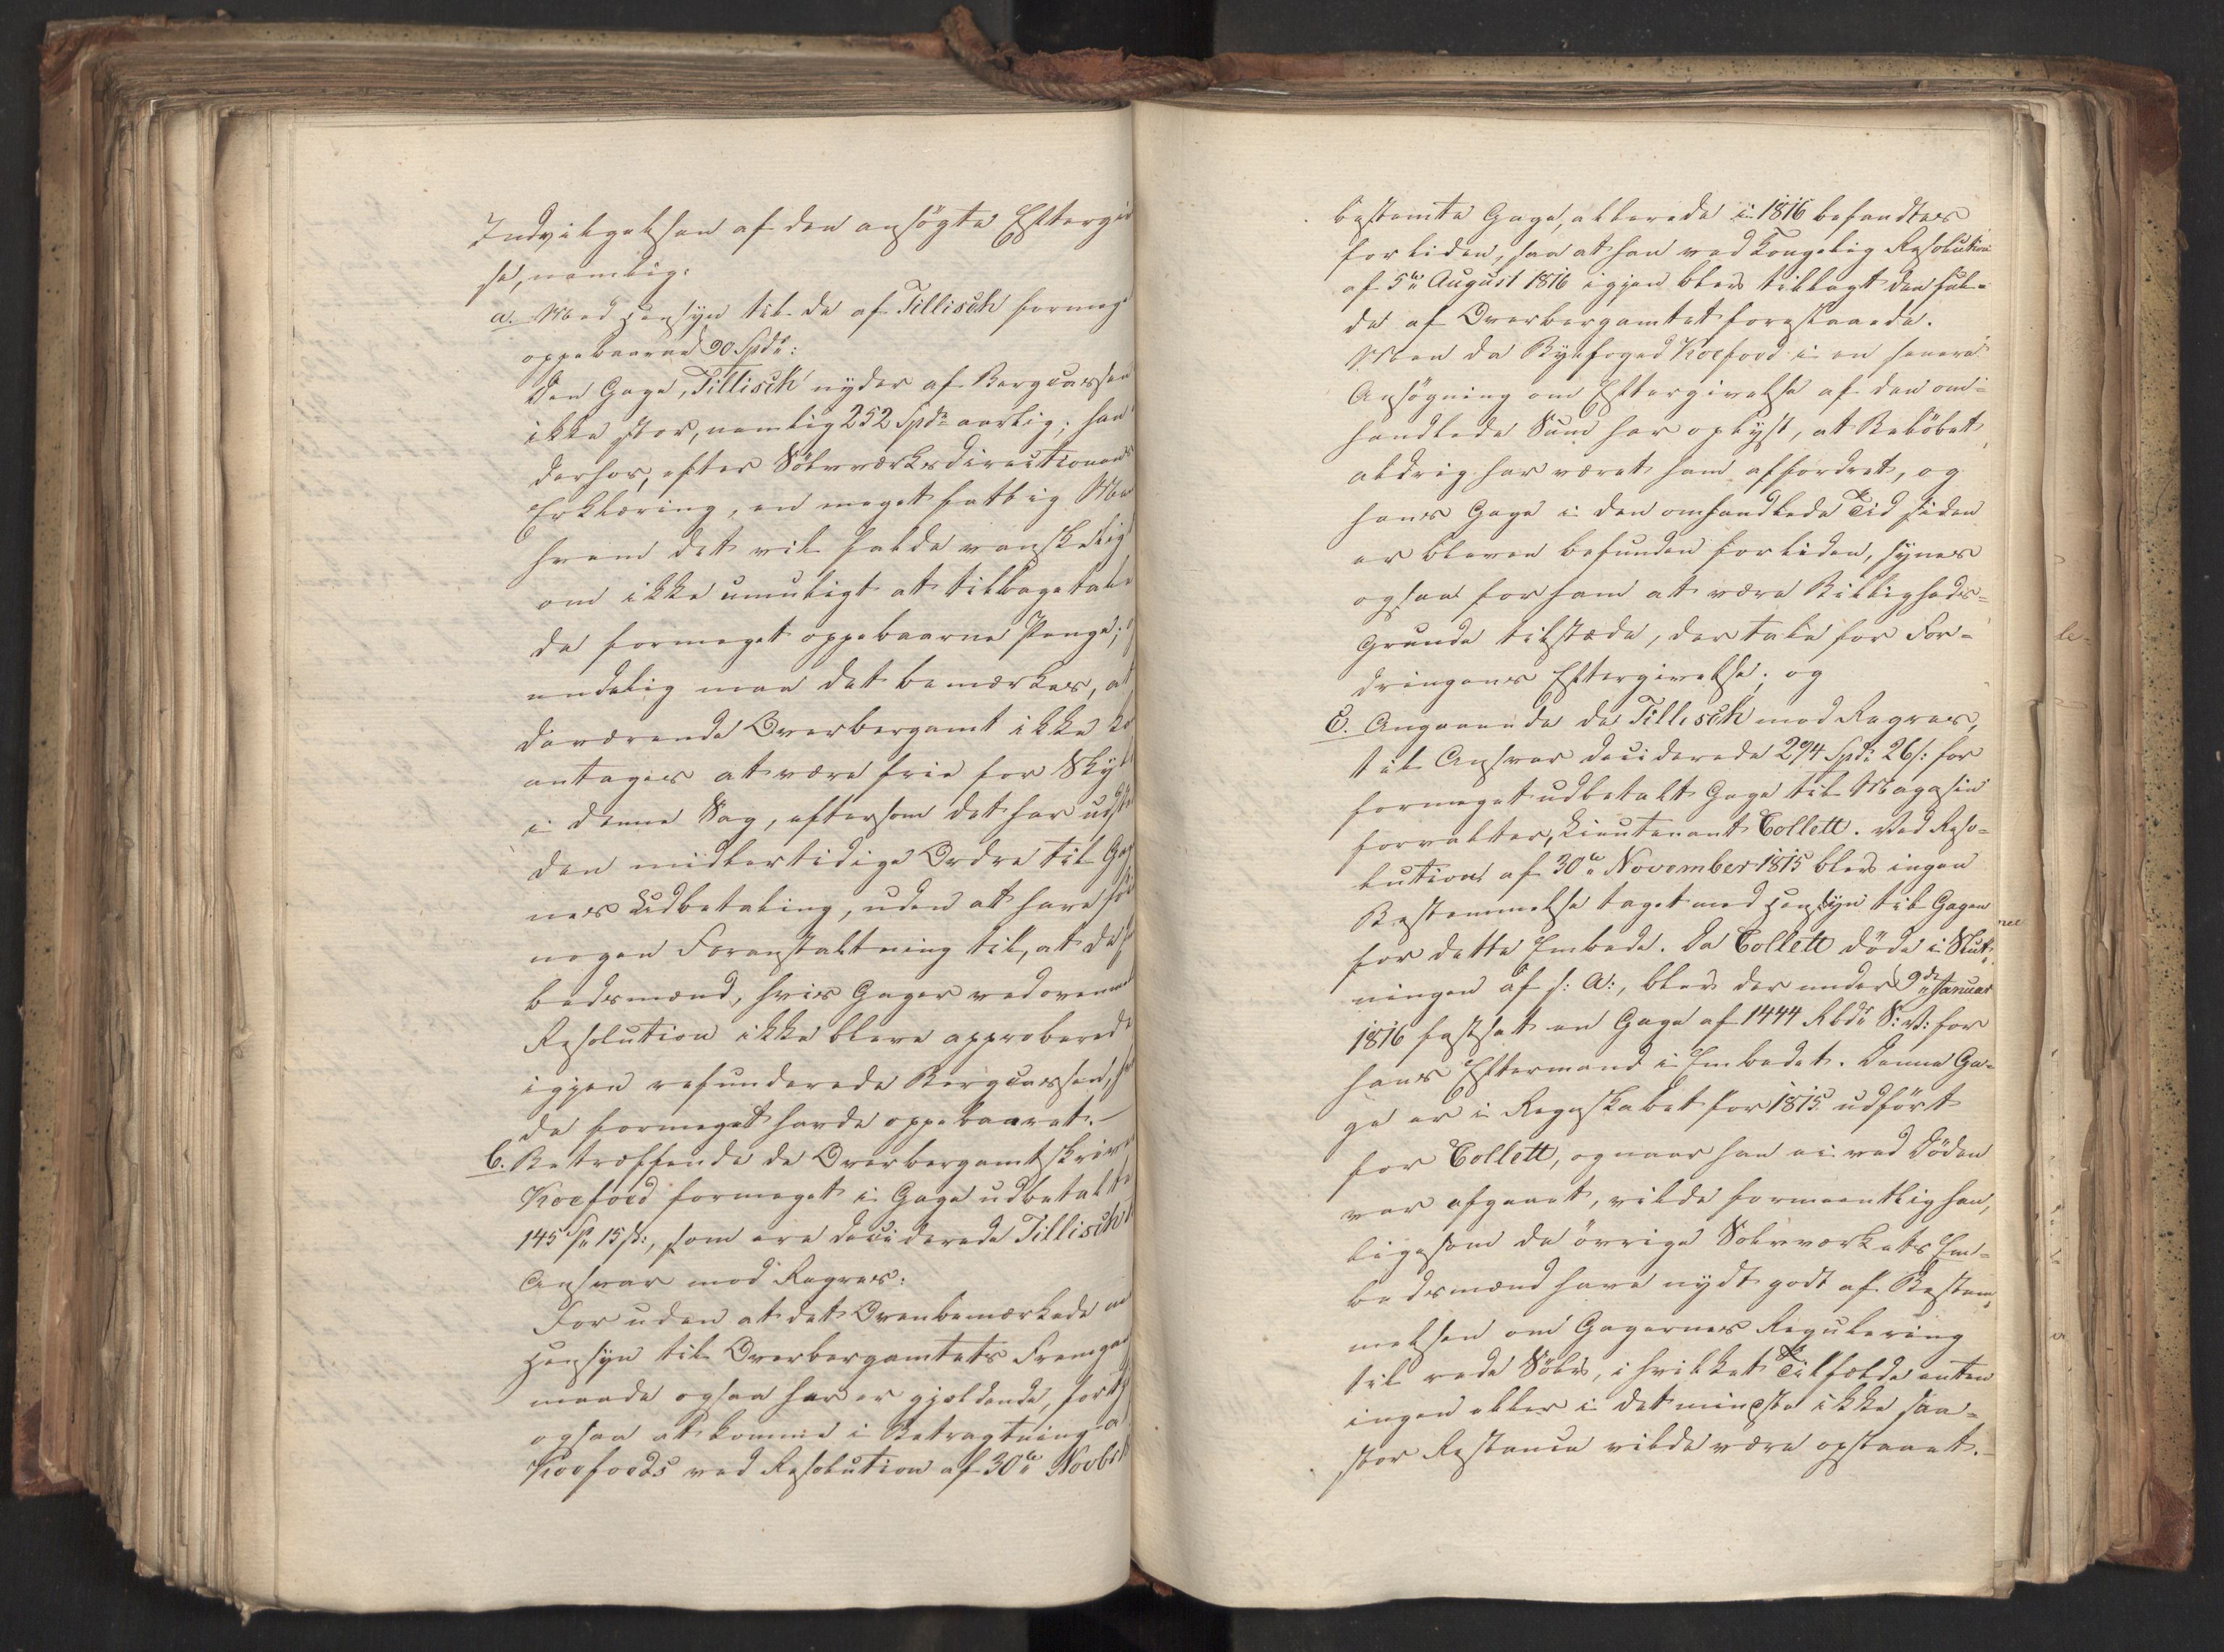 Indvilgelsen af den ansögte Eftergi
se, nemlig:
a. Med Hensyn til de af Tillisch formeget
oppebaarne 90 Spd:
Den Gage, Tillisch nyder af Bergcassen
ikke stor, nemlig 252 Spd aarlig; han
derhos, efter Sölvværksdirectionens
Erklæring, en meget fattig Man
hvem det vil falde vanskeligt
om ikke umuligt at tilbagetale
de formeget oppebaarne Penge;
endelig maa det bemærkes, at
daværende Overbergamt ikke ka
antages at være frie for Skyld
i denne Sag, eftersom det har udst
den midlertidige Ordre til Gag
nes Udbetaling, uden at have
nogen Foranstaltning til, at de
bedsmænd, hvis Gager ved oven
Resolution ikke bleve approberede
igjen refunderede Bergcassen,
de formeget havde oppebaaret.
b. Betræffende de Overbergamtskriver
Koefoed formeget i Gage udbetalte
145 Sp 15 s:, som ere deciderede Tillisch
Ansvar mod Regres:
For uden at det Ovenbemærkede
Hensyn til Overbergamtets Fremga
maade ogsaa her er gjældende, fort
ogsaa at komme i Betragtning a
Koefoeds ved Resolution af 30te Novbr
bestemte Gage, allerede i 1816 befandtes
for liden, saa at han ved Kongelig Resolution
af 5te August 1816 igjen blev tillagt den ful-
de af Overbergamtet foreslaaede.
Men da Byefoged Koefoed i en senere
Ansögning om Eftergivelse af den om-
handlede Sum har oplyst, at Belöbet
aldrig har været ham affordret, og
hans Gage i den omhandlede Tid siden
er bleven befunden for liden, synes
ogsaa for ham at være Billigheds-
Grunde tilstæde, der tale for For-
dringens Eftergivelse; og
c. Angaaende de Tillisch mod Regres,
til Ansvar deciderede 294 Spd 26 s: for
formeget udbetalt Gage til Magasin
forvalter, Lieutenant Collett. Ved Reso-
lution af 30te November 1815 blev ingen
Bestemmelse taget med Hensyn til Gagen
for dette Embede. Da Collett döde i Slut-
ningen af s: A:, blev der under 9de Januar
1816 fastsat en Gage af 1444 Rbd S: V: for
hans Eftermand i Embedet. Denne Ga-
ge er i Regnskabet for 1815 udfört
for Collett, og naar han ei ved Döden
var afgaaet, vilde formeentlig han,
ligesom de övrige Sölvværkets Em-
bedsmænd have nydt godt af Bestem-
melsen om Gagernes Regulering
til rede Sölv, i hvilket Tilfælde enten
ingen eller i det mindste ikke saa-
stor Restance vilde være opstaaet.